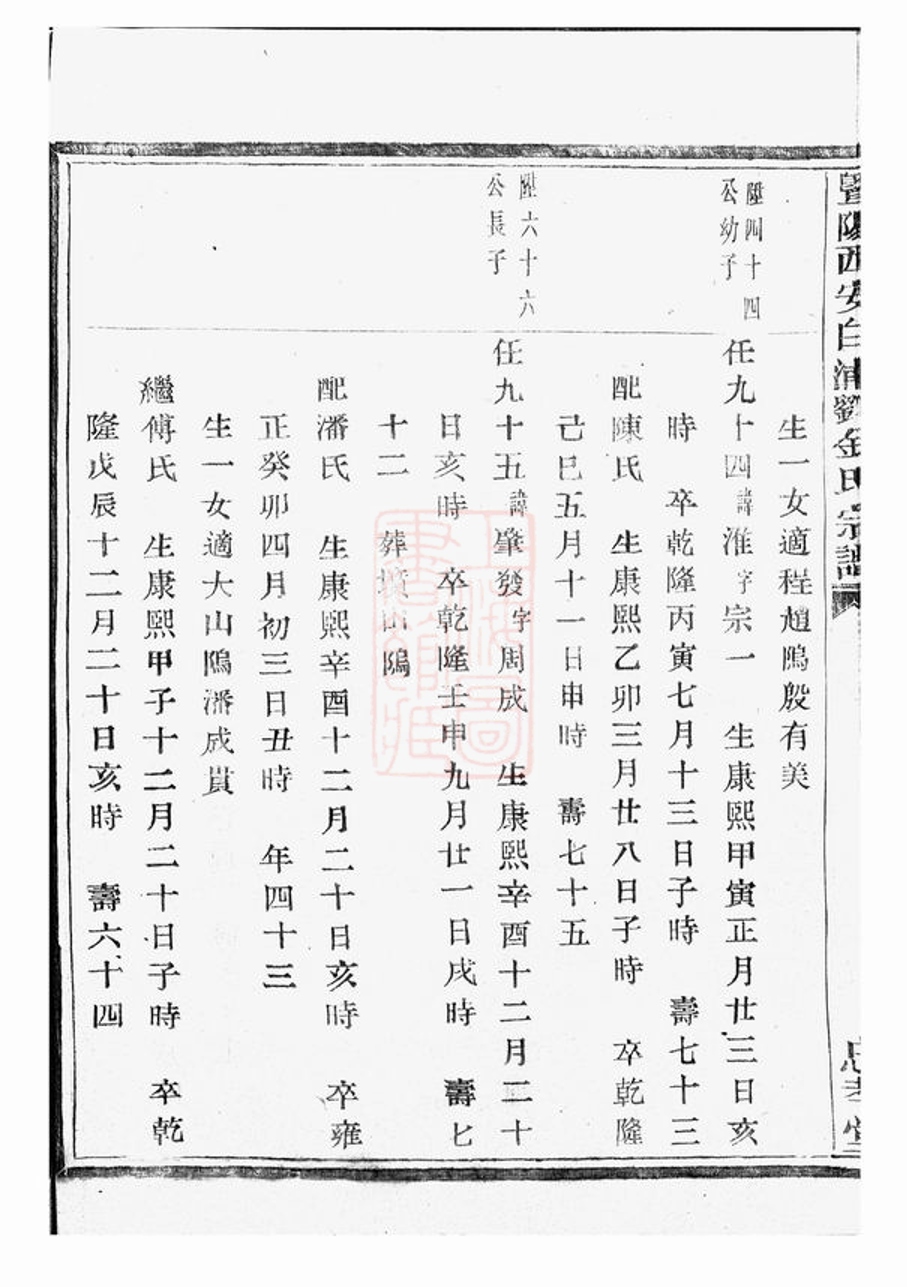 暨陽西安白浦劉金氏宗譜
忠孝堂
生一女適程趙隝殷有美
陞四十四
公幼子
任九十四諱淮字宗一 生康熙甲寅正月廿三日亥
時 卒乾隆丙寅七月十三日子時 壽七十三
配陳氏 生康熙乙卯三月廿八日子時 卒乾隆
己巳五月十一日申時 壽七十五
陞六十六
公長子
任九十五諱肇發字周成 生康熙辛酉十二月二十
日亥時 卒乾隆壬申九月廿一日戌時 壽七
十二 葬墳山隝
配潘氏 生康熙辛酉十二月二十日亥時 卒雍
正癸卯四月初三日丑時 年四十三
生一女適大山隝潘成貫
繼傅氏 生康熙甲子十二月二十日子時 卒乾
隆戊辰十二月二十日亥時 壽六十四